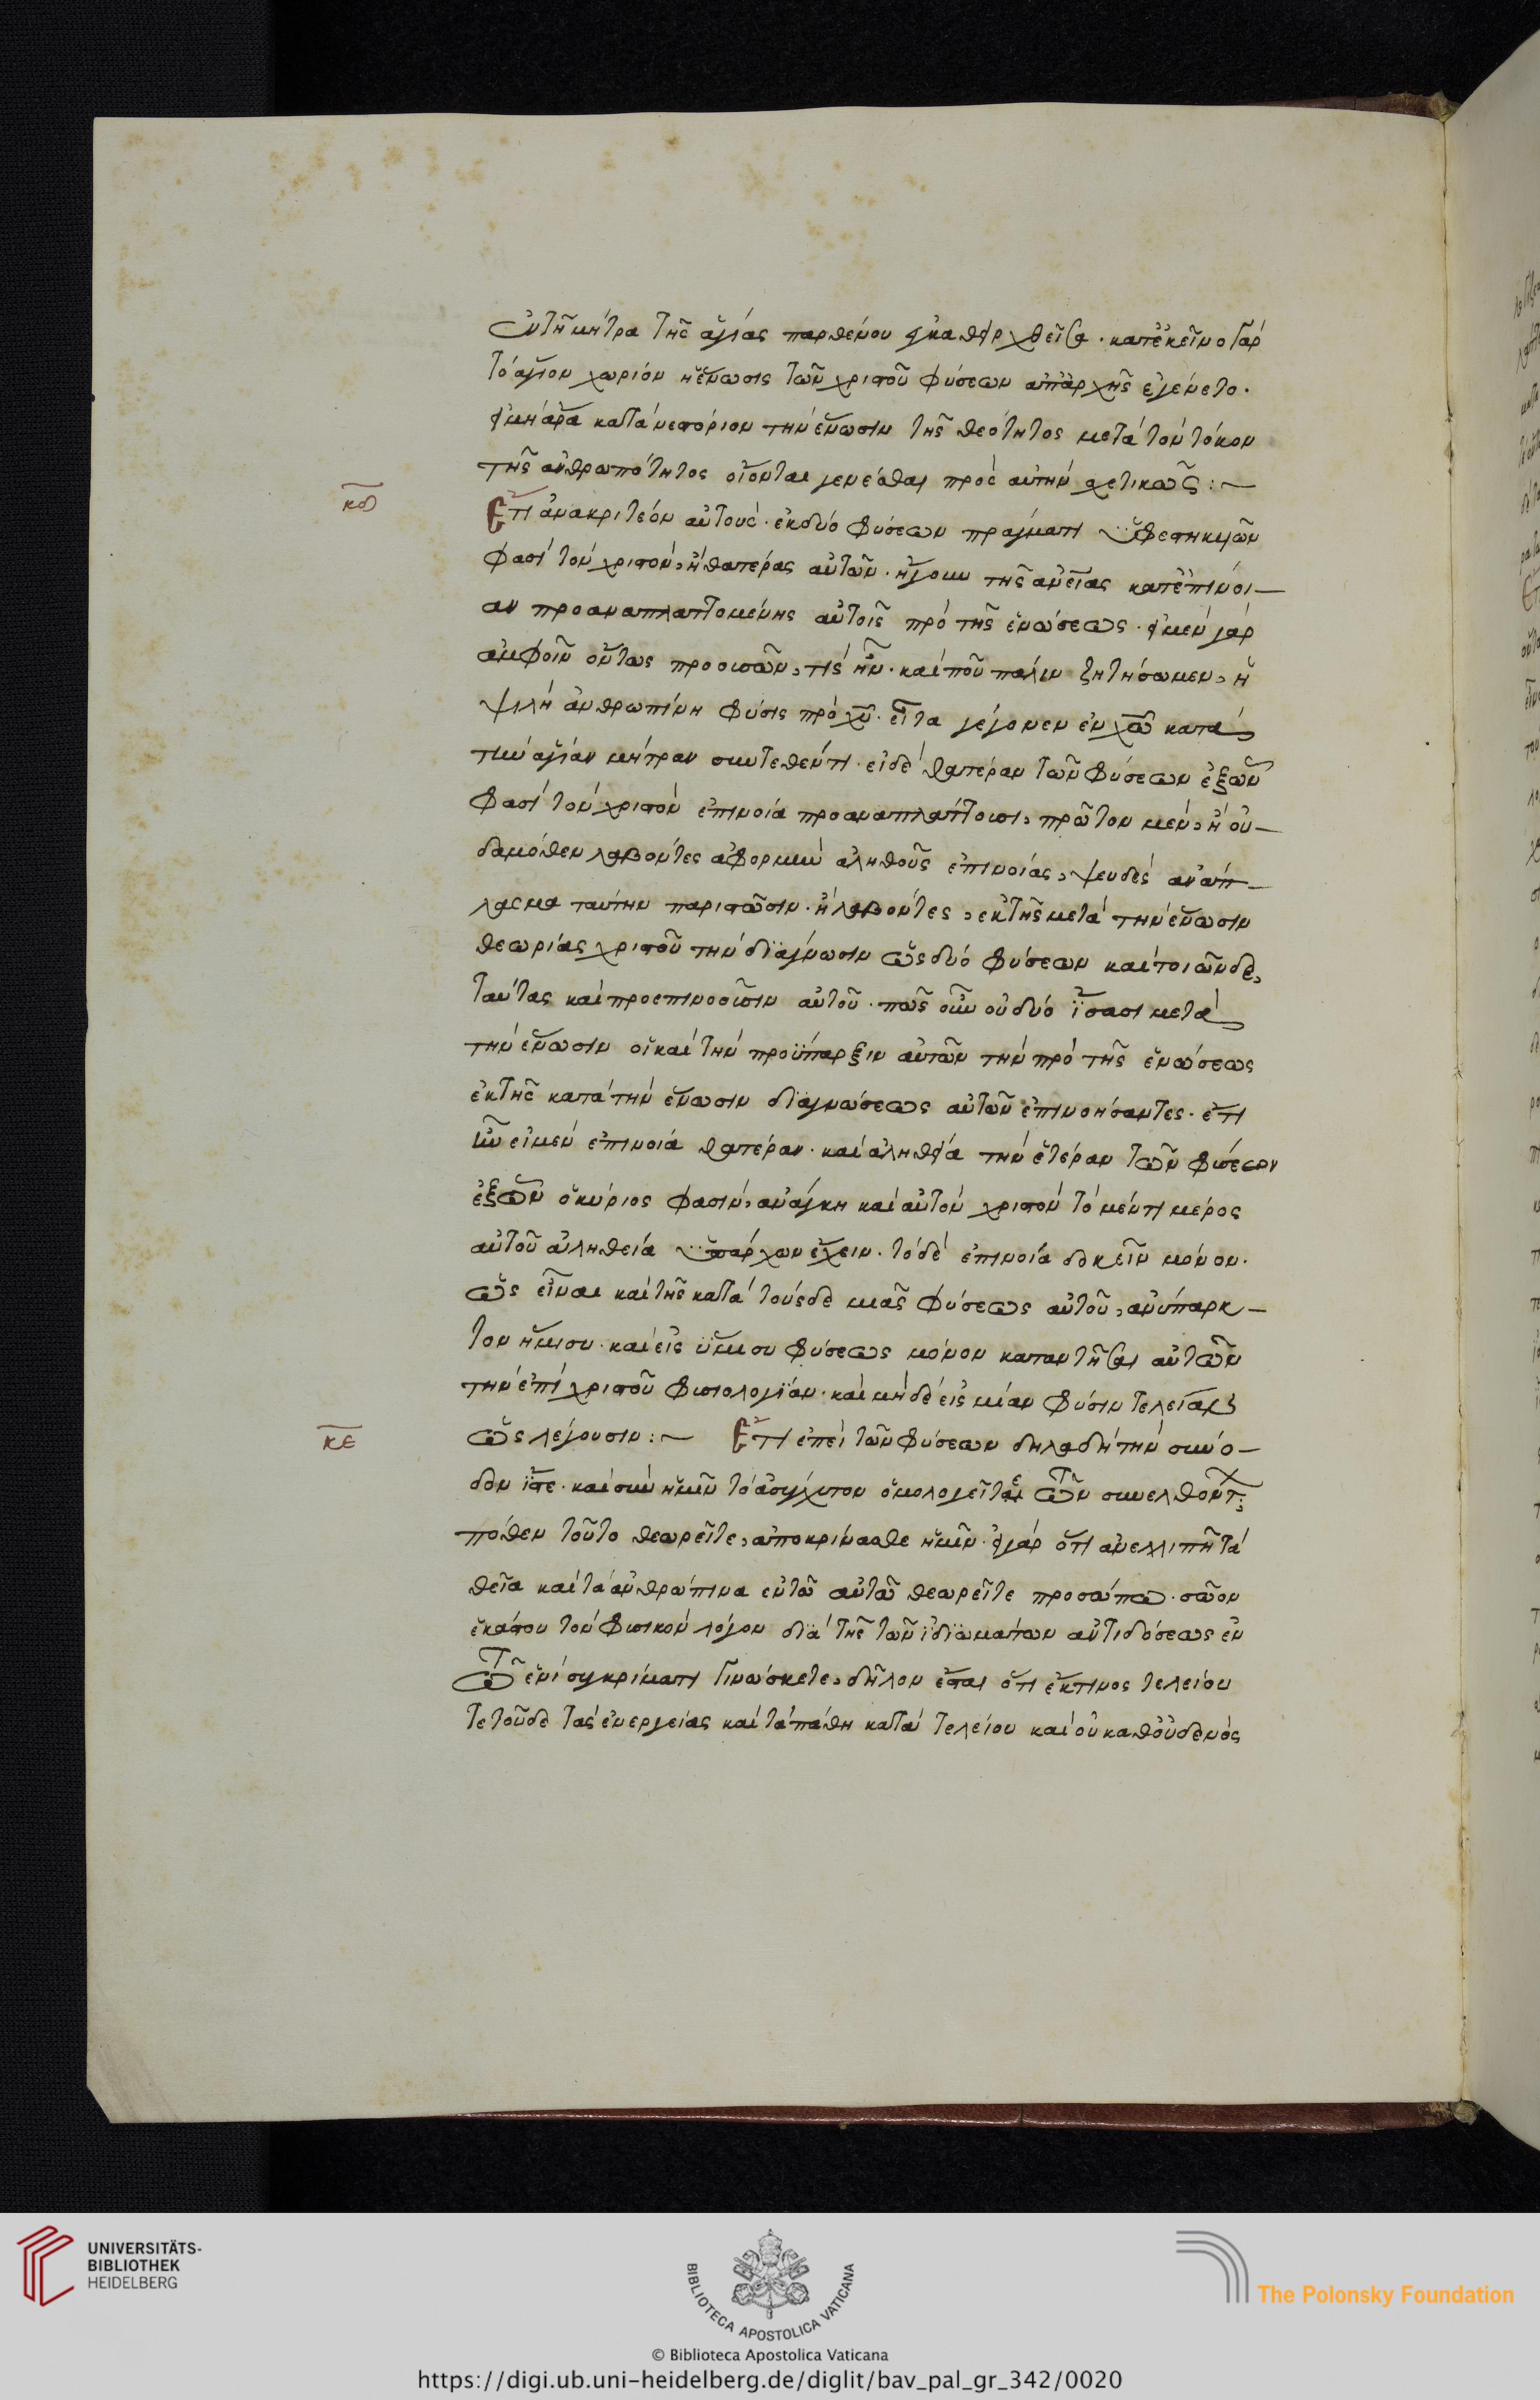 ἐν τῆ μήτρα τῆς ἁγίας παρθένου εἰκαθειρχθεῖσα · κατ' ἐκεῖνο γὰρ
τὸ ἅγιον χωρίον ἡ ἕνωσις τῶν χριστοῦ φύσεων ἀπ' ἀρχῆς ἐγένετο ·
εἰ μὴ ἄρα κατὰ νεστόριον τὴν ἕνωσιν τῆς θεότητος μετὰ τὸν τόκον
τῆς ἀνθρωπότητος οἴονται γενέσθαι πρὸς αὐτὴν σχετικῶς :~
κδ
Ἔτι ἀνακριτέον αὐτοὺς · ἐκ δύο φύσεων πράγματι ὑφεστηκυιῶν
φασὶ τὸν χριστὸν, ἢ θατέρας αὐτῶν · ἤγουν τῆς ἀνείας κατ' ἐπίνοι–
αν προαναπλαττομένης αὐτοῖς πρὸ τῆς ἑνώσεως · εἰ μὲν γὰρ
ἀμφοῖν ὄντως προουσῶν, τίς ἦν · καὶ ποῦ πάλιν ζητήσωμεν, ἡ
ψιλὴ ἀνθρωπίνη φύσις πρὸ χυ · εἶτα γέγονεν ἐν χω κατὰ
τὴν ἁγίαν μήτραν συντεθέντι · εἰ δὲ θατέραν τῶν φύσεων ἐξ ὧν
φασὶ τὸν χριστὸν ἐπινοία προαναπλάττουσι, πρῶτον μὲν, ἢ οὐ–
δαμόθεν λαβόντες ἀφορμὴν ἀληθοῦς ἐπινοίας, ψευδὲς ἀνάπ–
λασμα ταύτην παριστῶσιν · ἢ λαβόντες, ἐκ τῆς μετὰ τὴν ἕνωσιν
θεωρίας χριστοῦ τὴν διάγνωσιν ὡς δύο φύσεων καὶ τοιῶνδε,
ταύτας καὶ προεπινοοῦσιν αὐτοῦ · πῶς οὖν οὐ δύο ἴσασι μετὰ
τὴν ἕνωσιν οἱ καὶ τὴν προΰπαρξιν αὐτῶν τὴν πρὸ τῆς ἑνώσεως
ἐκ τῆς κατὰ τὴν ἕνωσιν διαγνώσεως αὐτῶν ἐπινοήσαντες · ἔτι
οὖν εἰ μὲν ἐπινοία θατέραν · καὶ ἀληθεία τὴν ἑτέραν τῶν φύσεων
ἐξ ὧν ὁ κύριος φασὶν, ἀνάγκη καὶ αὐτὸν χριστὸν τὸ μέν τι μέρος
αὐτοῦ ἀληθεία ὑπάρχον ἔχειν · τὸ δὲ ἐπινοία δοκεῖν μόνον ·
ὡς εἶναι καὶ τῆς κατὰ τούσδε μιᾶς φύσεως αὐτοῦ, ἀνύπαρκ–
τον ἥμισυ · καὶ εἰς ἥμισυ φύσεως μόνον καταντῆσαι αὐτῶν
τὴν ἐπὶ χριστοῦ φυσιολογίαν · καὶ μὴ δὲ εἰς μίαν φύσιν τελείαν
κε
ὡς λέγουσιν :~ Ἔτι ἐπεὶ τῶν φύσεων δηλαδὴ τὴν σύνο–
δον ἴστε · καὶ σὺν ἡμῖν τὸ ἀσύγχυτον ὁμολογεῖται τῶν συνελθόντ
πόθεν τοῦτο θεωρεῖτε, ἀποκρίνασθε ἡμῖν · εἰ γὰρ ὅτι ἀνελλιπῆ τὰ
θεῖα καὶ τὰ ἀνθρώπινα ἐν τῶ αὐτῶ θεωρεῖτε προσώπω · σῶον
ἑκάστου τὸν φυσικὸν λόγον διὰ τῆς τῶν ἰδιωμάτων ἀντιδόσεως ἐν
τῶ ἑνὶ συγκρίματι γινώσκετε, δῆλον ἔσται ὅτι ἔκ τινος τελείου
τε τοῦδε τὰς ἐνεργείας καὶ τὰ πάθη κατὰ τελείου καὶ οὐ καθ' οὐδενός
UNIVERSITÄTS-
BIBLIOTHEK
HEIDELBERG
BIBLIOTECA APOSTOLICA VATICANA
The Polonsky Foundation
© Biblioteca Apostolica Vaticana
https://digi.ub.uni-heidelberg.de/diglit/bav_pal_gr_342/0020